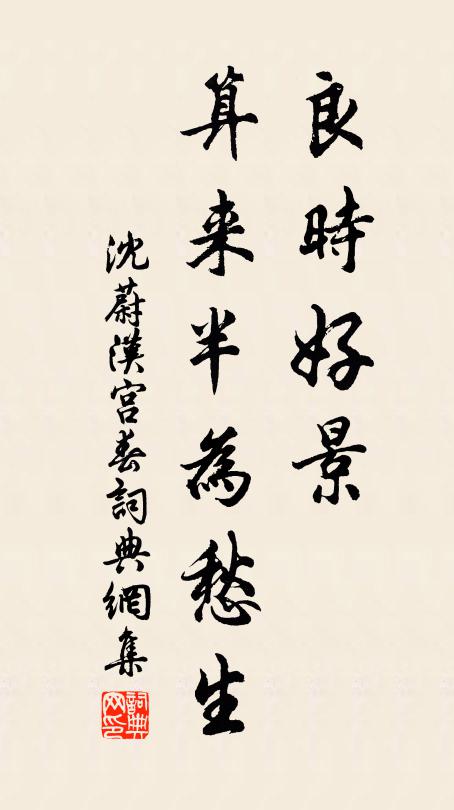 良時好景
算来半為愁生
沈蔚漢宫春詞典網集
詞典
网印